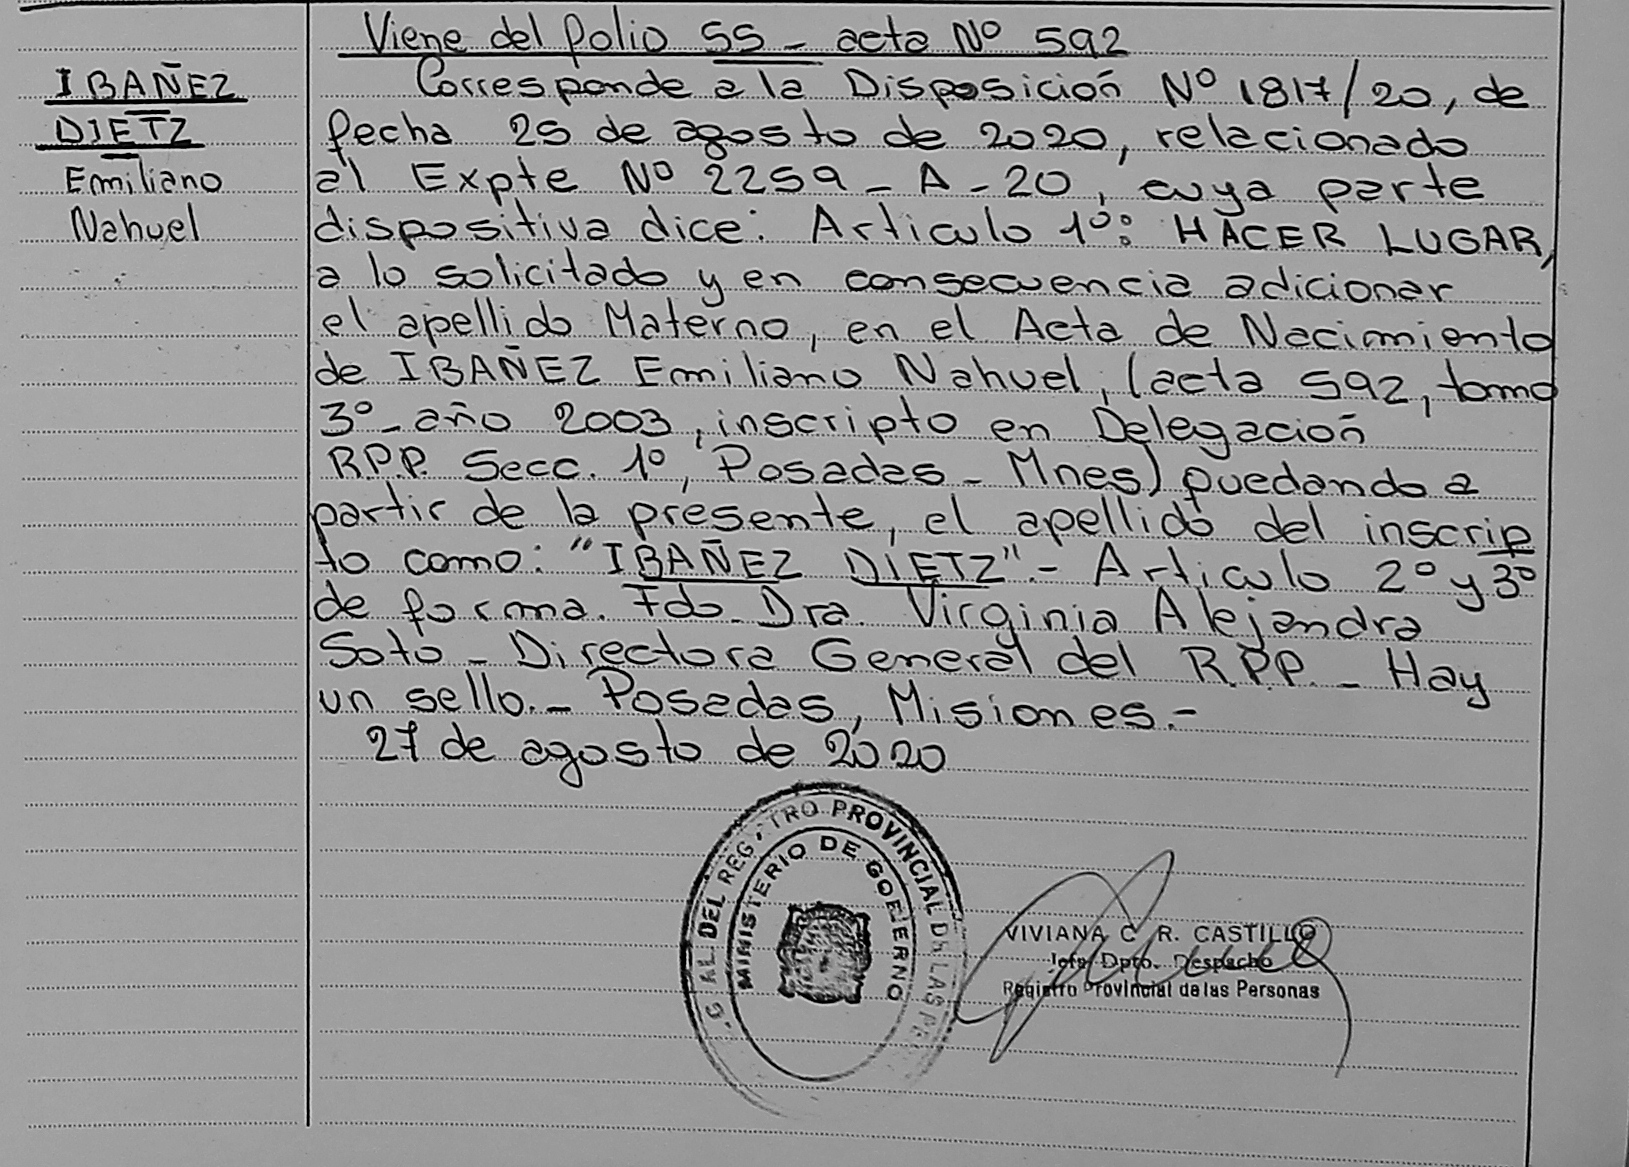 Viene del folio 55 - acta Nº 592
IBAÑEZ
DIETZ
Emiliano
Nahuel
Corresponde a la Disposición Nº 1817/20, de
fecha 25 de agosto de 2020, relacionado
al Expte Nº 2259 - A - 20, cuya parte
dispositiva dice: Articulo 1º: HACER LUGAR,
a lo solicitado y en consecuencia adicionar
el apellido Materno, en el Acta de Nacimiento
de IBAÑEZ Emiliano Nahuel, (acta 592, tomo
3º - año 2003, inscripto en Delegación
R.P.P. Secc. 1º, Posadas - Mnes) quedando a
partir de la presente, el apellido del inscrip
to como: "IBAÑEZ DIETZ".- Articulo 2º y 3º
de forma. Fdo. Dra. Virginia Alejandra
Soto - Directora General del R.P.P. - Hay
un sello.- Posadas, Misiones.-
27 de agosto de 2020
AL. DEL REGISTRO PROVINCIAL DE LAS
MINISTERIO DE GOBIERNO
VIVIANA C. R. CASTILLO
Jefa Dpto. Despacho
Registro Provincial de las Personas